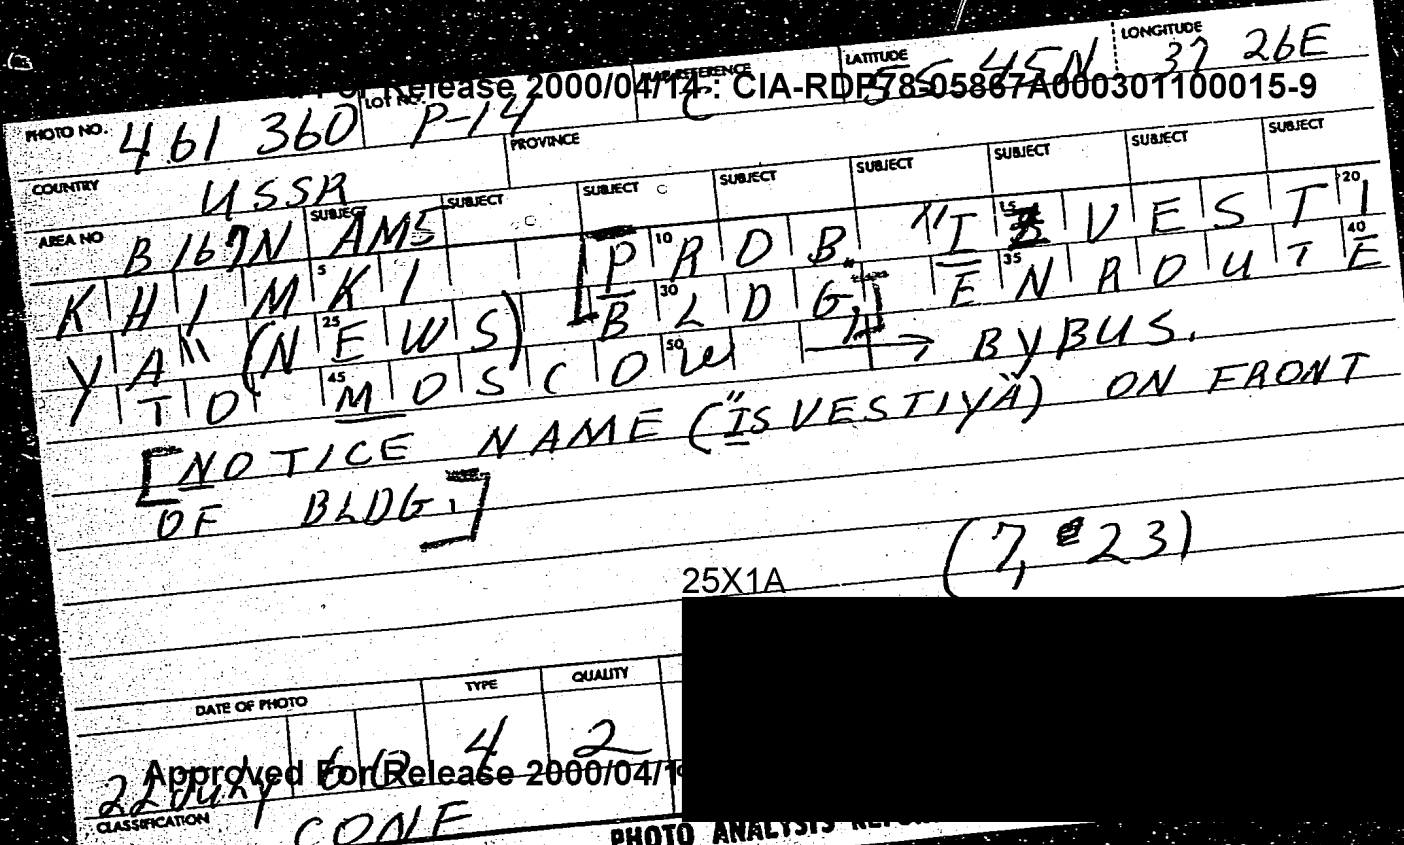 LATITUDE 55 45N LONGITUDE 37 26E
For Release 2000/04/14 : CIA-RDP78-05867A000301100015-9
PHOTO NO. 461 360 LOT NO. P-14 C
COUNTRY USSR PROVINCE
AREA NO B167N SUBJECT AMS SUBJECT SUBJECT SUBJECT SUBJECT SUBJECT SUBJECT SUBJECT
KHIMKI [PROB. "IZVESTI
YA" (NEWS) BLDG.] ENROUTE
TO MOSCOW → BY BUS.
[NOTICE NAME ("ISVESTIYA") ON FRONT
OF BLDG.]
(7, 23)
25X1A
DATE OF PHOTO TYPE QUALITY
22 July 60 4 2
Approved For Release 2000/04/1
CLASSIFICATION CONF
PHOTO ANALYSIS